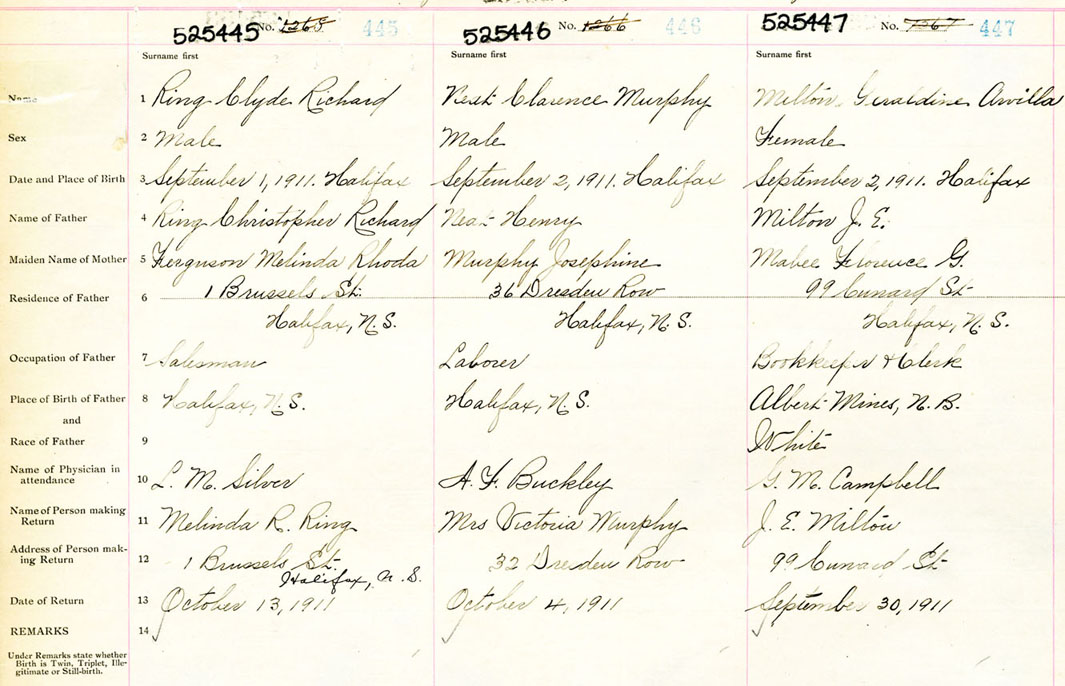 525445 No. 1265 445 525446 No. 1266 446 525447 No. 1267 447
Surname first Surname first Surname first
Name 1 Ring Clyde Richard Neat Clarence Murphy Milton Geraldine Arvilla
Sex 2 Male Male Female
Date and Place of Birth 3 September 1, 1911. Halifax September 2, 1911. Halifax September 2, 1911. Halifax
Name of Father 4 Ring Christopher Richard Neat Henry Milton J. E.
Maiden Name of Mother 5 Ferguson Melinda Rhoda Murphy Josephine Mabee Florence G.
Residence of Father 6 1 Brussels St. 36 Dresden Row 99 Cunard St
Halifax, N.S. Halifax, N.S. Halifax, N.S.
Occupation of Father 7 Salesman Laborer Bookkeeper & Clerk
Place of Birth of Father 8 Halifax, N.S. Halifax, N.S. Albert Mines, N.B.
and
Race of Father 9 White
Name of Physician in
attendance 10 L. M. Silver A. F. Buckley G. M. Campbell
Name of Person making
Return 11 Melinda R. Ring Mrs Victoria Murphy J. E. Milton
Address of Person mak-
ing Return 12 1 Brussels St. 32 Dresden Row 99 Cunard St
Halifax, N.S.
Date of Return 13 October 13, 1911 October 4, 1911 September 30, 1911
REMARKS 14
Under Remarks state whether
Birth is Twin, Triplet, Ille-
gitimate or Still-birth.